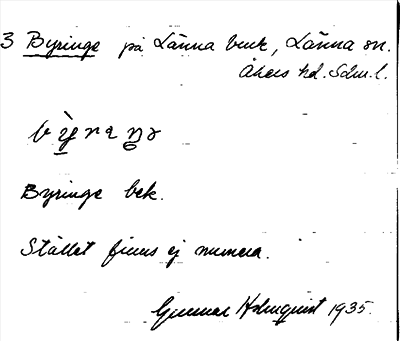 3 Byringe på Länna bruk, Länna sn.
Åkers hd. Sdm.l.
Byringe bek.
Stället finns ej numera.
Gunnar Holmquist 1935.